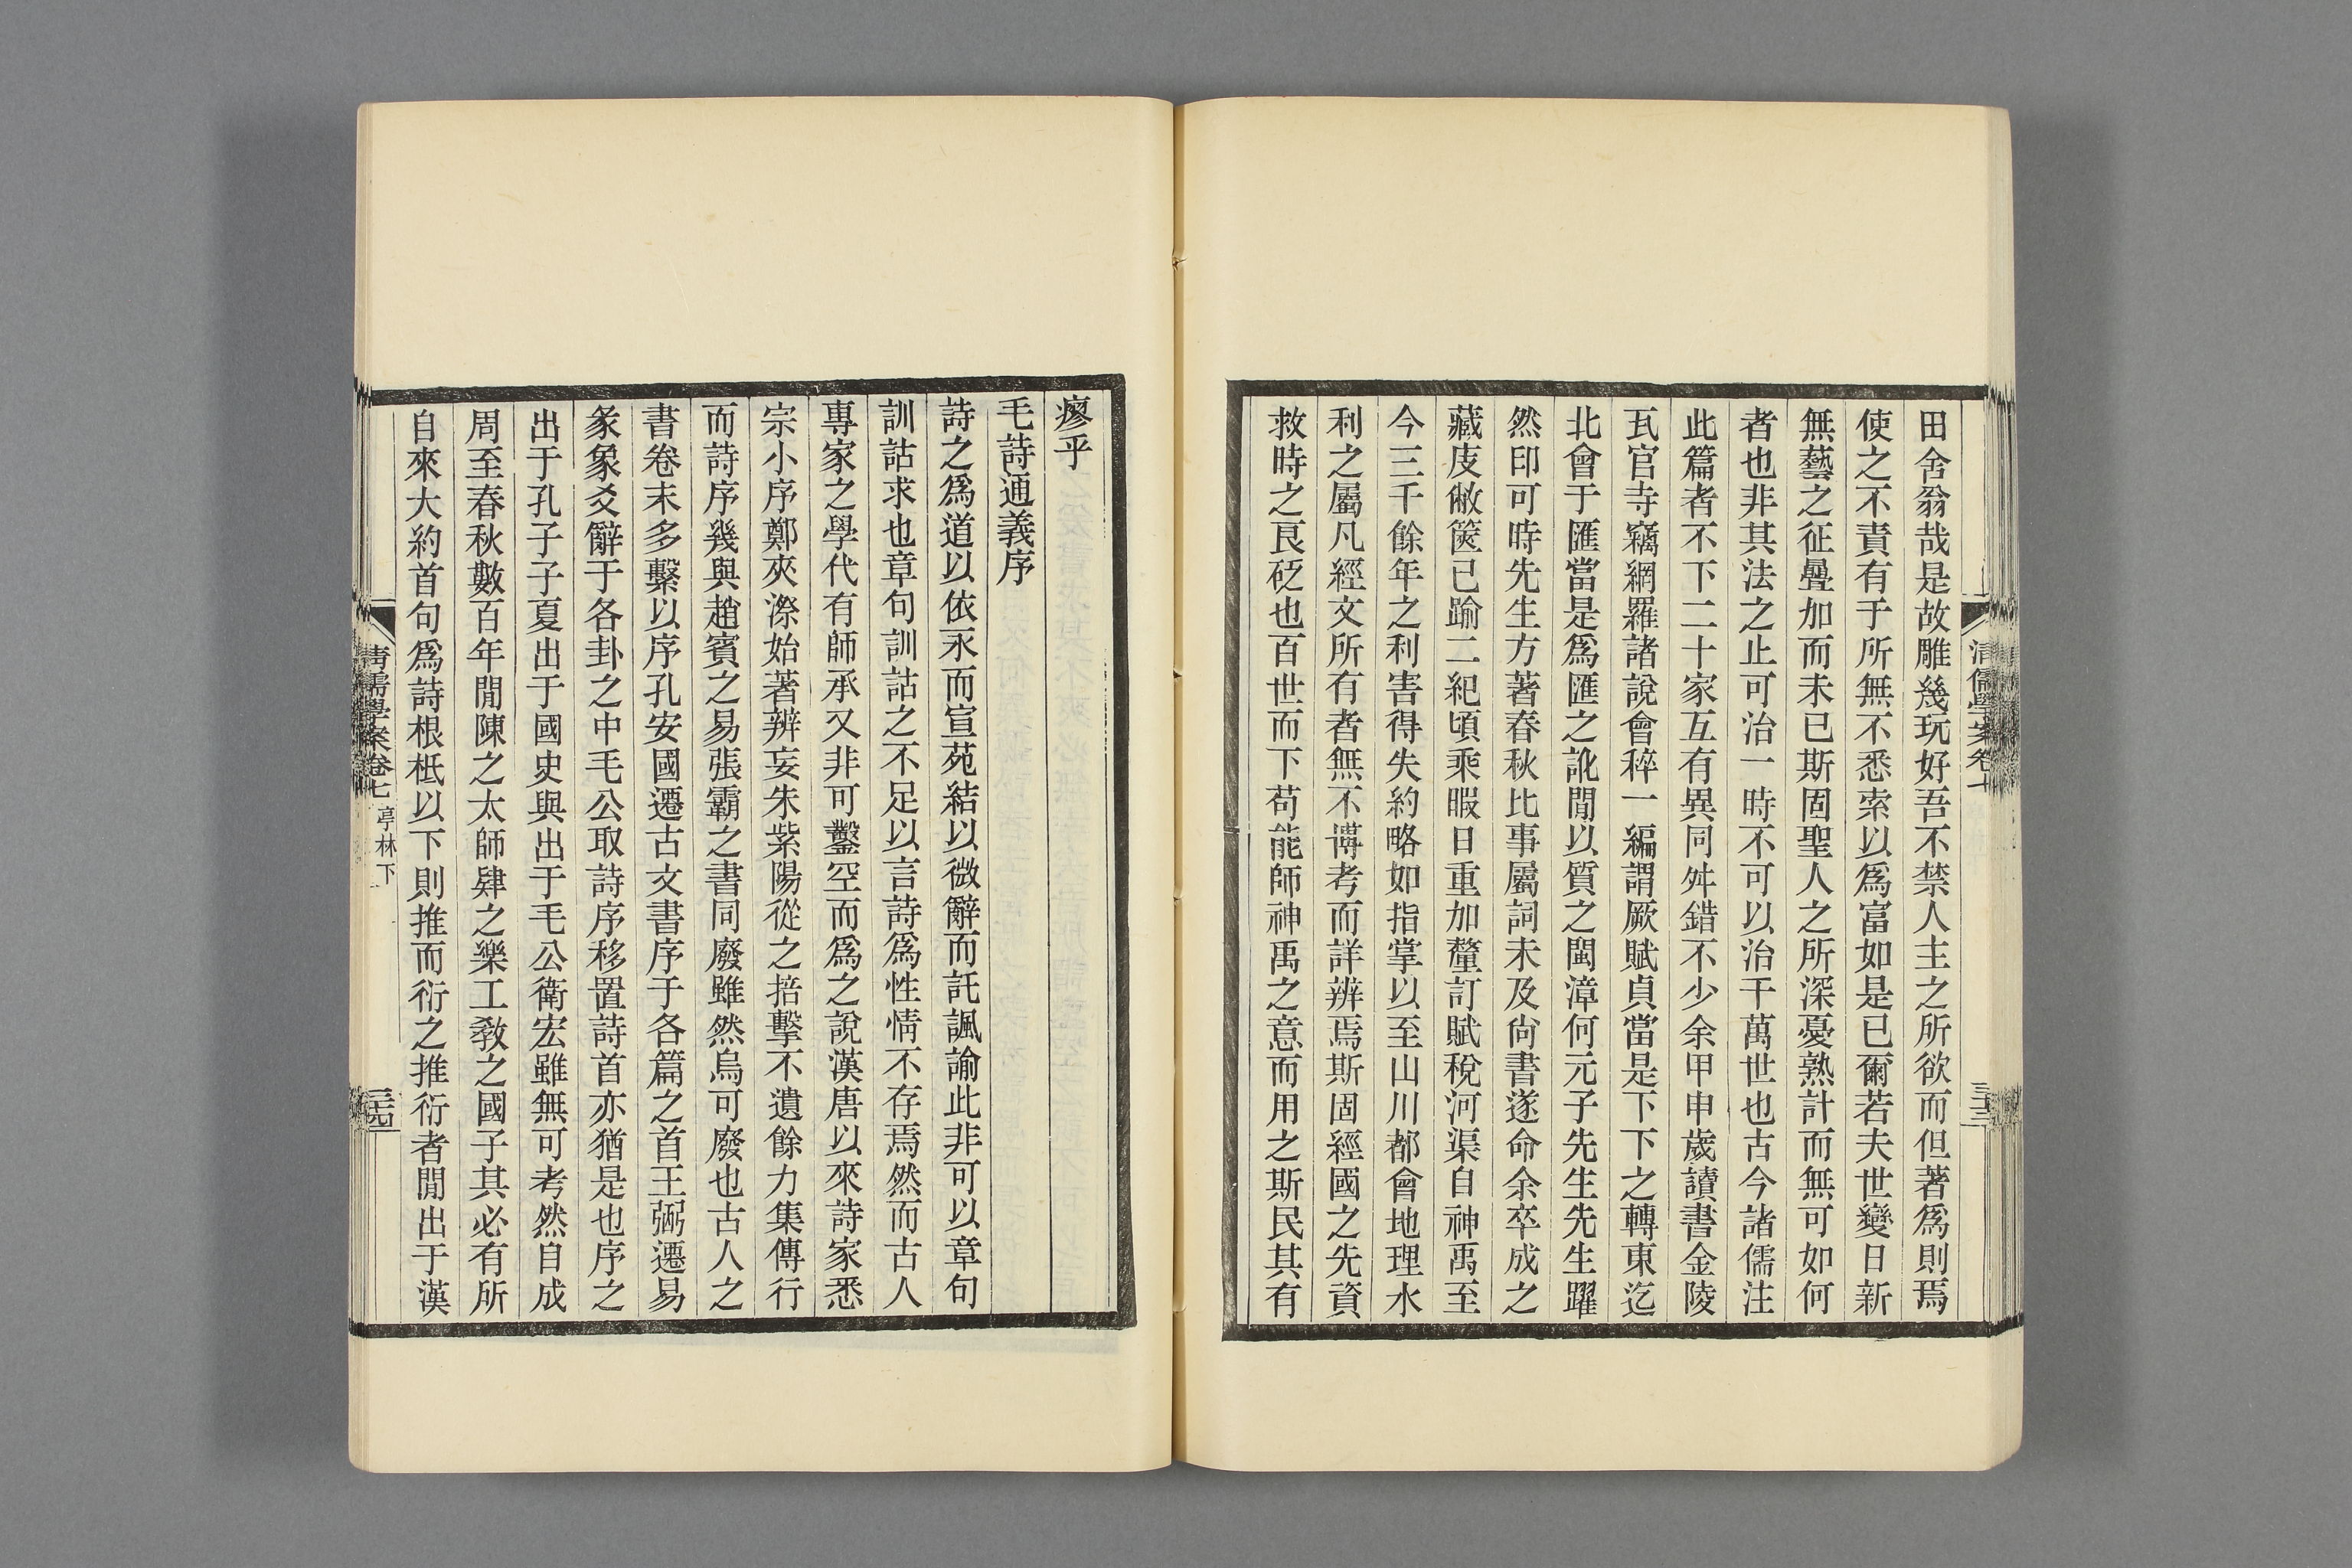 田舍翁哉是故雕幾玩好吾不禁人主之所欲而但著爲則焉
使之不責有于所無不悉索以爲富如是已爾若夫世變日新
無藝之征疊加而未已斯固聖人之所深憂熟計而無可如何
者也非其法之止可治一時不可以治千萬世也古今諸儒注
此篇者不下二十家互有異同舛錯不少余甲申歲讀書金陵
瓦官寺竊網羅諸說會稡一編謂厥賦貞當是下下之轉東迆
北會于匯當是爲匯之訛閒以質之閩漳何元子先生先生躍
然印可時先生方著春秋比事屬詞未及尙書遂命余卒成之
藏庋敝篋已踰二紀頃乘暇日重加釐訂賦稅河渠自神禹至
今三千餘年之利害得失約略如指掌以至山川都會地理水
利之屬凡經文所有者無不博考而詳辨焉斯固經國之先資
救時之良砭也百世而下苟能師神禹之意而用之斯民其有
清儒學案卷七
三十三
瘳乎
毛詩通義序
詩之爲道以依永而宣苑結以微辭而託諷諭此非可以章句
訓詁求也章句訓詁之不足以言詩爲性情不存焉然而古人
專家之學代有師承又非可鑿空而爲之說漢唐以來詩家悉
宗小序鄭夾漈始著辨妄朱紫陽從之掊擊不遺餘力集傳行
而詩序幾與趙賓之易張霸之書同廢雖然烏可廢也古人之
書卷末多繫以序孔安國遷古文書序于各篇之首王弼遷易
彖象爻辭于各卦之中毛公取詩序移置詩首亦猶是也序之
出于孔子子夏出于國史與出于毛公衞宏雖無可考然自成
周至春秋數百年閒陳之太師肄之樂工敎之國子其必有所
自來大約首句爲詩根柢以下則推而衍之推衍者閒出于漢
清儒學案卷七 亭林下
三十四